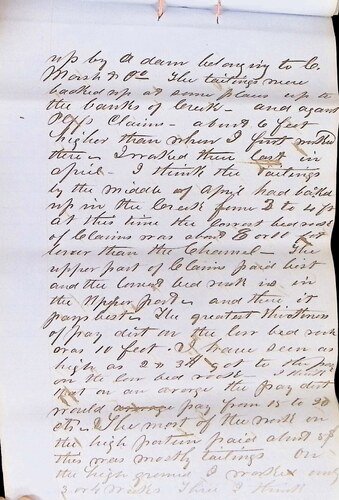 up by a dam belonging to C.
Marsh & Co. The tailings were
backed up at some places up to
the banks of Creek - and against
Plffs Claims - about 6 feet
higher than when I first worked
there - I worked there last in
April - I think the tailings
by the middle of April had backed
up in the Creek from 3 to 4 ft
at this time the lowest bed rock
of Claims was about 8 or
lower than the Channel - The
upper part of Claims paid best
and the lowest bed rock is in
the upper part - and there it
pays best - The greatest thickness
of pay dirt on the low bed rock
was 10 feet. I have seen as
high as 2 or 3 $ got to the pan
on the low bed rock - I think
that on an average the pay dirt
would average pay from 15 to 20
cts. The most of the rock in
the high portion paid about
this was mostly tailings on
the high ground I worked only
3 or 4 weeks There I think